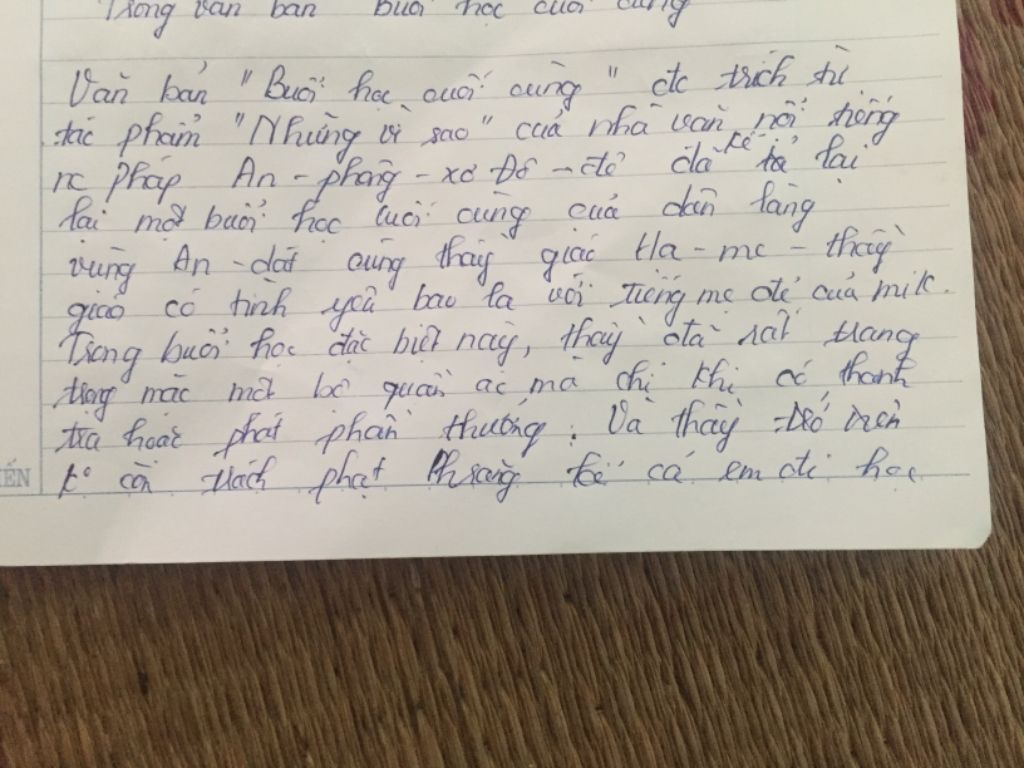 Trong văn bản "Buổi học cuối cùng
Văn bản "Buổi học cuối cùng" đc trích từ
tác phẩm "Những vì sao" của nhà văn nổi tiếng
nc Pháp An-phông-xơ Đô-đê đã kể tả lại
lại một buổi học cuối cùng của dân làng
vùng An-dát cùng thầy giáo Ha-me - thầy
giáo có tình yêu bao la với tiếng mẹ đẻ của mik.
Trong buổi học đặc biệt này, thầy đã rất trang
trọng mặc một bộ quần áo mà chỉ khi có thanh
tra hoặc phát phần thưởng. Và thầy trở nên
k còn trách phạt Phrăng kể cả em đi học
YẾN